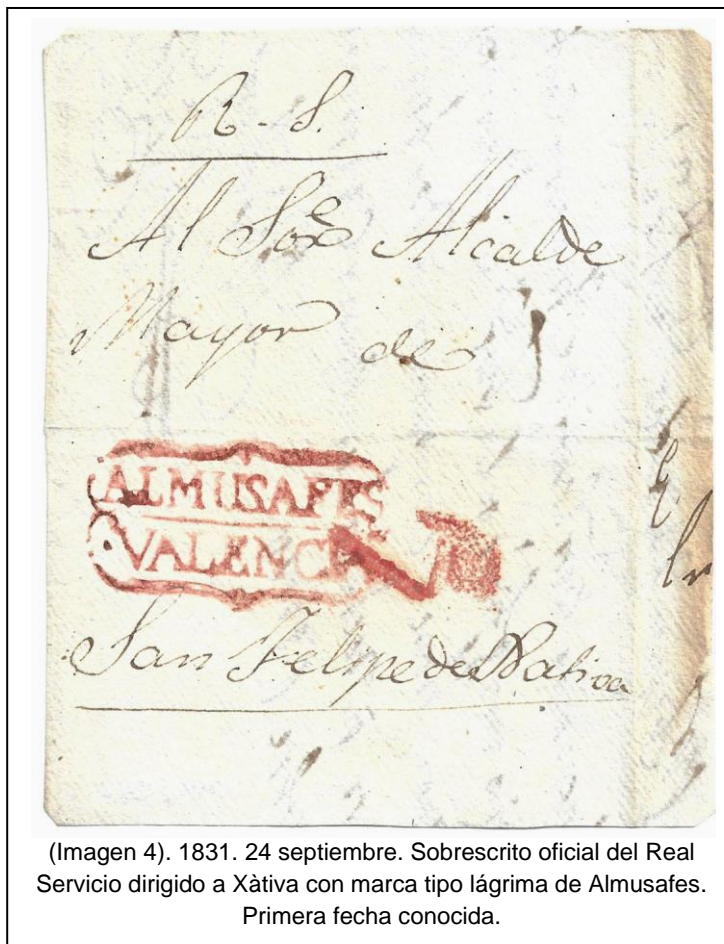 R. S.
Al Sor Alcalde
Mayor de
ALMUSAFES
VALENCIA
San Felipe de Xativa
(Imagen 4). 1831. 24 septiembre. Sobrescrito oficial del Real
Servicio dirigido a Xàtiva con marca tipo lágrima de Almusafes.
Primera fecha conocida.